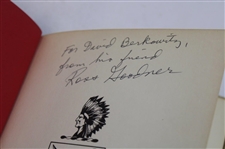 For David Berkowitz,
from his friend
Ross Goodner